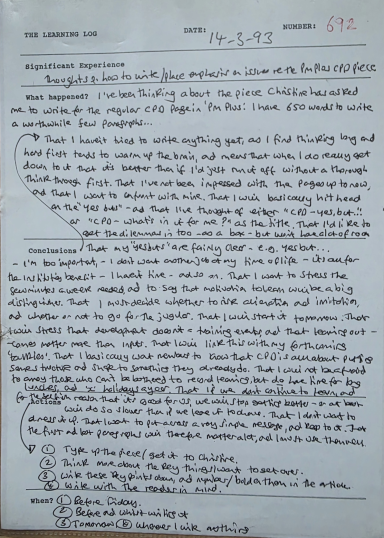 THE LEARNING LOG
DATE: 14-3-93
NUMBER: 692
Significant Experience
Thoughts on how to write/place emphasis on issues re the PM Plus CPD piece
What happened? I've been thinking about the piece Christine has asked
me to write for the regular CPD Page in 'PM Plus'. I have 650 words to write
a worthwhile few paragraphs...
That I haven't tried to write anything yet, as I find thinking long and
hard first tends to warm up the brain, and means that when I do really get
down to it that it's better than if I'd just run off without a thorough
think through first. That I've not been impressed with the pages up to now,
and that I want to with mine. That I will basically hit head
on the "yes buts" - and that I've thought of either "CPD - yes, but.."
or "CPD - what's in it for me?" as the title. That I'd like to
get the dilemmas in too - as a box - but will have a lot of room
Conclusions That my "yes buts" are fairly clear - e.g. yes but...
- I'm too important, - I don't want another job at my time of life - it's all for
the benefit - I haven't time - and so on. That I want to stress the
few minutes a week needed, and to say that motivation to learn will be a big
distinguisher. That I must decide whether to risk alienation and irritation,
and whether or not to go for the jugular. That I will start it tomorrow. That
I will stress that development doesn't = training events, and that learning out-
comes matter more than inputs. That I will link this with my forthcoming
'baubles'. That I basically want members to know that CPD is all about putting
some and to something they already do. That I will not be afraid
to annoy those who can't be bothered to record learning, but do have time for long
lunches, and 'x' holidays a year. That if we don't continue to learn, and
for the reason that it's good for us, we will stop getting better - or at been
Actions will do so slower than if we leave it to chance. That I don't want to
dress it up. That I want to put across a very simple message, and keep to it. That
the first and last paragraphs will therefore matter a lot, and I must use them well.
① Type up the piece / get it to Christine.
② Think more about the key things I want to get over.
③ Write these key points down, and number / bold them in the article.
④ Write with the reader in mind.
When? ① Before Friday.
② Before and whilst writing it
③ Tomorrow ④ Whenever I write anything